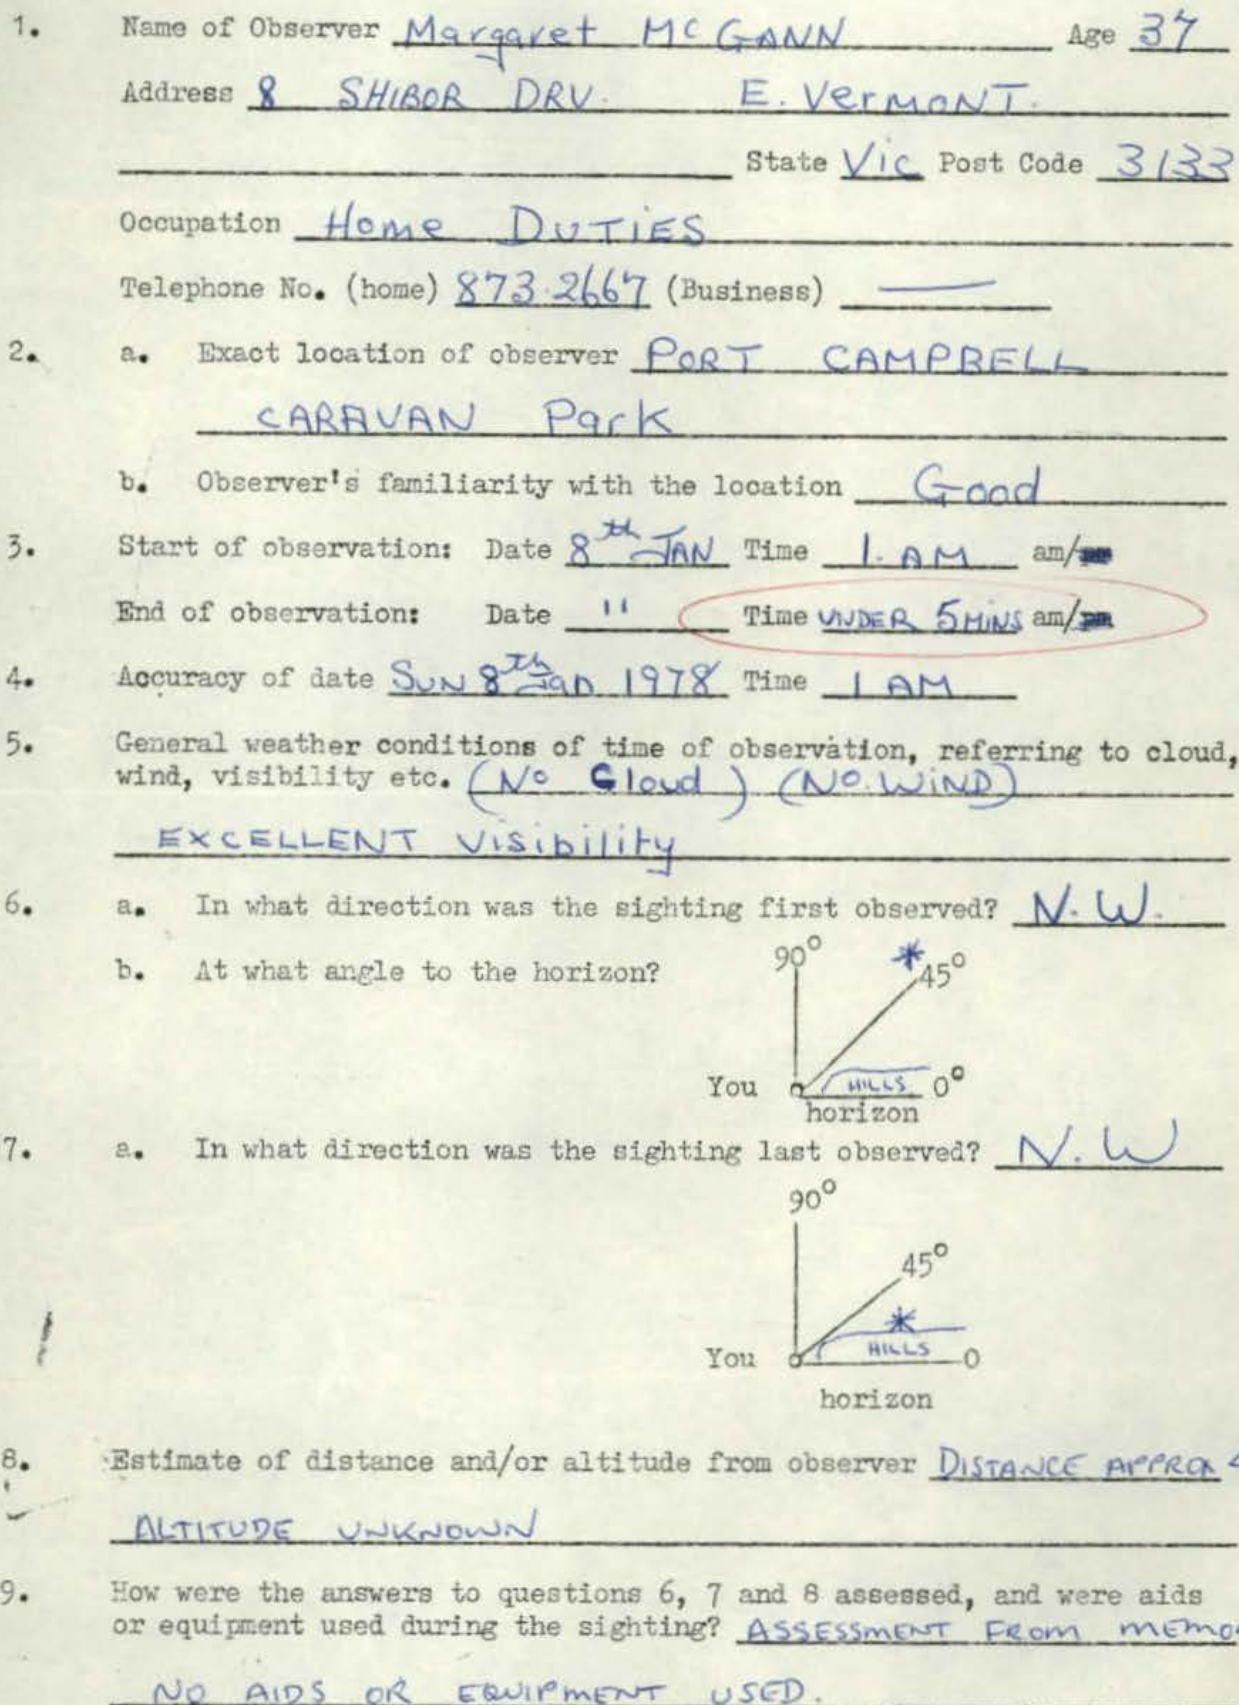 1. Name of Observer Margaret McGANN Age 37
Address 8 SHIBOR DRV. E. VerMONT.
State Vic Post Code 3133
Occupation Home DUTIES
Telephone No. (home) 873.2667 (Business) —
2. a. Exact location of observer PORT CAMPBELL
CARAVAN Park
b. Observer's familiarity with the location Good
3. Start of observation: Date 8th JAN Time 1. AM am/
End of observation: Date " Time UNDER 5 MINS am/
4. Accuracy of date SUN 8th Jan 1978 Time 1 AM
5. General weather conditions of time of observation, referring to cloud,
wind, visibility etc. (No Cloud) (NO. WIND)
EXCELLENT Visibility
6. a. In what direction was the sighting first observed? N.W.
b. At what angle to the horizon?
90°
45°
You HILLS 0°
horizon
7. a. In what direction was the sighting last observed? N.W
90°
45°
You HILLS 0
horizon
8. Estimate of distance and/or altitude from observer DISTANCE APPROX
ALTITUDE UNKNOWN
9. How were the answers to questions 6, 7 and 8 assessed, and were aids
or equipment used during the sighting? ASSESSMENT FROM MEMO
NO AIDS OR EQUIPMENT USED.